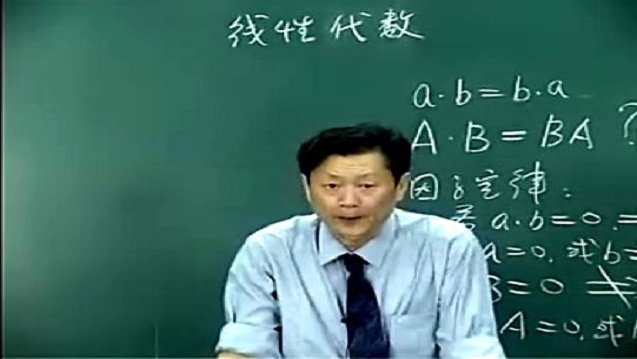 线性代数
a·b=b·a
A·B=BA ?
因子定律:
若 a·b=0. =
a=0. 或 b=
B=0 ≠>
A=0. 或